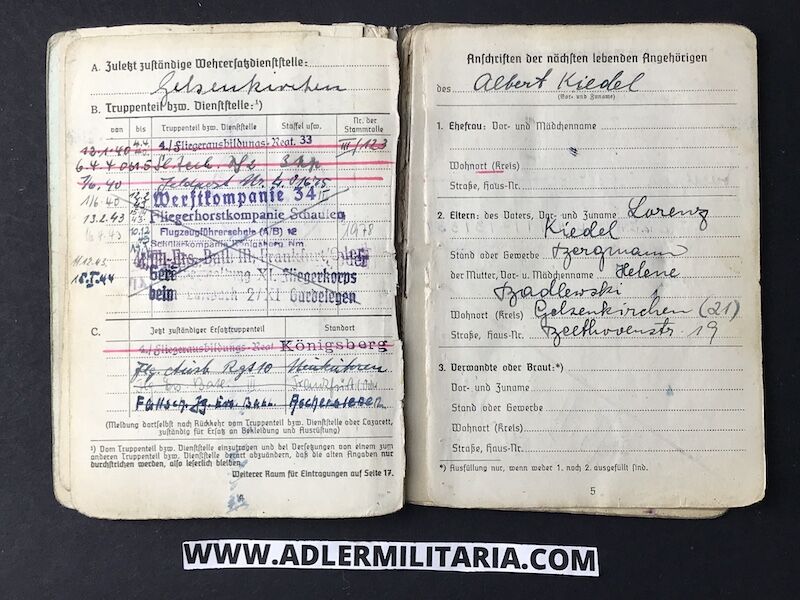 A. Zuletzt zuständige Wehrersatzdienststelle:
Gelsenkirchen
B. Truppenteil bzw. Dienststelle:¹)
von bis Truppenteil bzw. Dienststelle Staffel usw. Nr. der Stammrolle
13.1.40 4./Fliegerausbildungs-Regt. 33 III/123
6.4.40
Feldpost Nr.
1/6.40 Werftkompanie 34
13.2.43 Fliegerhorstkompanie Schaulen
Flugzeugführerschule (A/B) 12 1978
Schülerkompanie Königsberg Nm
11.12.43 Frankfurt/Oder
15. I. 44 XI. Fliegerkorps
beim 2/XI Gardelegen
C. Jetzt zuständiger Ersatztruppenteil Standort
4./Fliegerausbildungs-Regt Königsberg
Flg. Ausb. Rgt 10 Neukuhren
Fallsch. Jg. Ers. Batl. Aschersleben
(Meldung dortselbst nach Rückkehr vom Truppenteil bzw. Dienststelle oder Lazarett,
zuständig für Ersatz an Bekleidung und Ausrüstung)
¹) Vom Truppenteil bzw. Dienststelle einzutragen und bei Versetzungen von einem zum
anderen Truppenteil bzw. Dienststelle derart abzuändern, daß die alten Angaben nur
durchstrichen werden, also leserlich bleiben.
Weiterer Raum für Eintragungen auf Seite 17.
Anschriften der nächsten lebenden Angehörigen
des Albert Kiedel
(Vor- und Zuname)
1. Ehefrau: Vor- und Mädchenname
Wohnort (Kreis)
Straße, Haus-Nr.
2. Eltern: des Vaters, Vor- und Zuname Lorenz
Kiedel
Stand oder Gewerbe Bergmann
der Mutter, Vor- u. Mädchenname Helene
Wohnort (Kreis) Gelsenkirchen (21)
Straße, Haus-Nr. Beethovenstr. 19
3. Verwandte oder Braut:*)
Vor- und Zuname
Stand oder Gewerbe
Wohnort (Kreis)
Straße, Haus-Nr.
*) Ausfüllung nur, wenn weder 1. noch 2. ausgefüllt sind.
5
WWW.ADLERMILITARIA.COM